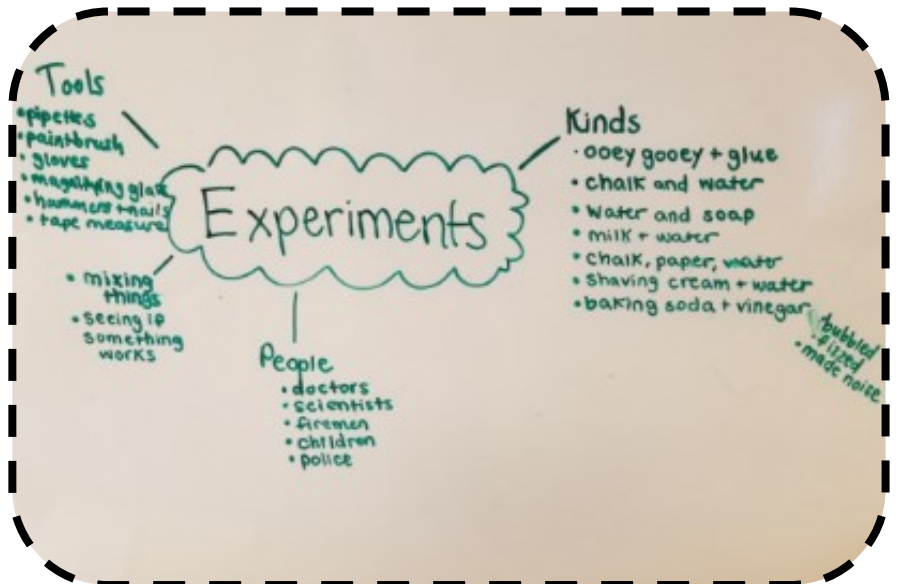 Tools
•pipettes
•paintbrush
•gloves
•magnifying glass
•hammers+nails
•tape measure
Experiments
•mixing
things
•seeing if
something
works
People
•doctors
•scientists
•firemen
•children
•police
Kinds
•ooey gooey + glue
•chalk and water
•water and soap
•milk + water
•chalk, paper, water
•shaving cream + water
•baking soda + vinegar
•bubbled
•fizzed
•made noise